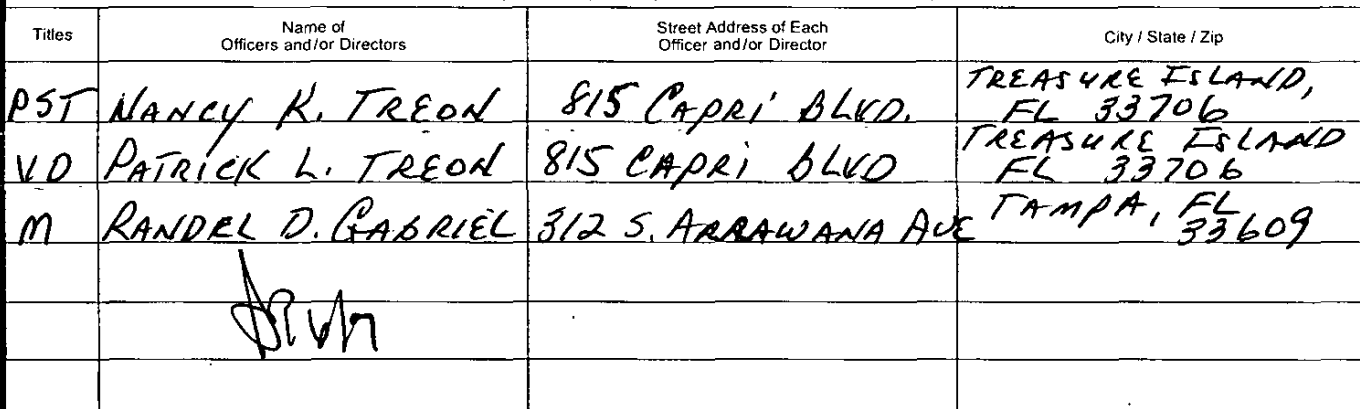 Titles
Name of
Officers and/or Directors
Street Address of Each
Officer and/or Director
City / State / Zip
PST NANCY K. TREON 815 CAPRI BLVD. TREASURE ISLAND,
FL 33706
VD PATRICK L. TREON 815 CAPRI BLVD TREASURE ISLAND
FL 33706
M RANDEL D. GABRIEL 312 S. ARRAWANA AVE TAMPA, FL
33609